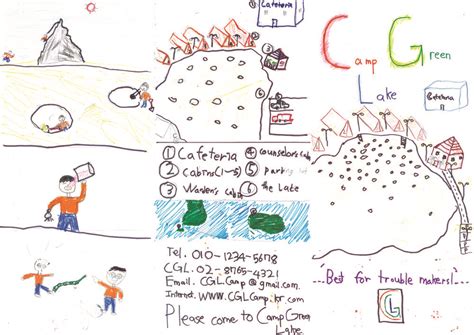 Cafeteria
① Cafeteria ④ counselor's Cabin
② cabins(1~5) ⑤ parking
③ Warden's Cabin ⑥ the Lake
Tel. 010-1234-5678
CGL. 02-8765-4321
Email. CGLCamp@gmail.com.
Internet. WWW.CGLCamp.kr.com
Please come to Camp Green
Lake
Camp Green
Lake
Cafeteria
...Best for trouble makers!...
CGL